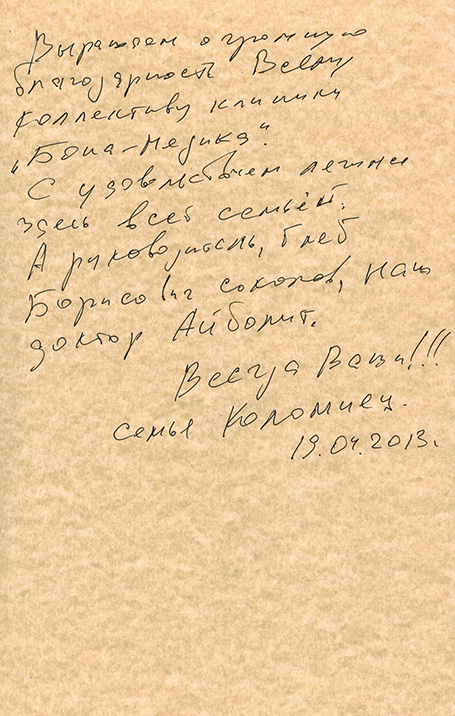 Выражаем огромную
благодарность Всему
коллективу клиники
„Бона-Медика".
С удовольствием лечимся
здесь всей семьёй.
А руководитель, Глеб
Борисович Соколов, наш
доктор Айболит.
Всегда Ваши!!!
семья Коломиец.
19.04.2013.